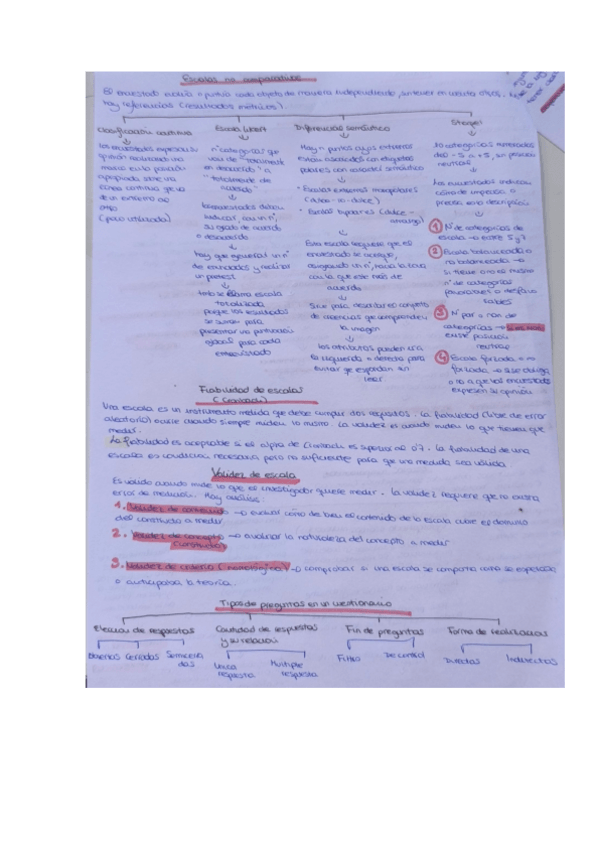 Escalas no comparativas
El encuestado evalúa o puntúa cada objeto de manera independiente, sin tener en cuenta otros.
hay referencias (resultados métricos).
Clasificación continua
los encuestados expresan su
opinión realizando una
marca en la posición
apropiada sobre una
línea continua que va
de un extremo a
otro
(poco utilizada)
Escala Likert
nº categorías que
van de "totalmente
en desacuerdo" a
"totalmente de
acuerdo"
los encuestados deben
indicar, con un nº,
su grado de acuerdo
o desacuerdo
hay que generar un nº
de enunciados y realizar
un pretest
también se llama escala
totalizada
porque los resultados
se suman para
presentar una puntuación
global para cada
entrevistado
Diferencias semántico
Hay n puntos cuyos extremos
están asociados con etiquetas
polares con carácter semántico
• Escalas extremas monopolares
(dulce - no dulce)
• Escalas bipolares (dulce -
amargo)
Esta escala requiere que el
encuestado se acerque,
asignando un nº, hacia la cara
con la que esté más de
acuerdo
Sirve para describir el conjunto
de creencias que comprenden
la imagen
los atributos pueden ir a
la izquierda o derecha para
evitar que expandan sin
leer
Stapel
10 categorías numeradas
del -5 a +5, sin posición
neutral
Los encuestados indican
cómo de imprecisa o
precisa es la descripción
1 Nº de categorías de
escala → entre 5 y 7
2 Escala balanceada o
no balanceada → si
tiene o no el mismo
nº de categorías
favorables o desfavo
rables
3 Nº par o non de
categorías → si es non
existe posición
neutral
4 Escala forzada o no
forzada → si se obliga
o no a que los encuestados
expresen su opinión
Fiabilidad de escalas
(Cronbach)
Una escala es un instrumento medida que debe cumplir dos requisitos. La fiabilidad (libre de error
aleatorio) ocurre cuando siempre miden lo mismo. La validez es cuando miden lo que tienen que
medir.
La fiabilidad es aceptable si el alpha de Cronbach es superior al 0'7. La fiabilidad de una
escala es condición necesaria pero no suficiente para que una medida sea válida.
Validez de escala
Es válida cuando mide lo que el investigador quiere medir. La validez requiere que no exista
error de medición. Hay análisis:
1. Validez de contenido → evaluar cómo de bien el contenido de la escala cubre el dominio
del constructo a medir
2. Validez de concepto → evaluar la naturaleza del concepto a medir
(constructo)
3. Validez de criterio (nomológica) → comprobar si una escala se comporta como se esperaba
o anticipaba la teoría.
Tipos de preguntas en un cuestionario
Elección de respuestas
Abiertas Cerradas Semicerra
das
Cantidad de respuestas
y su relación
Única
respuesta
Múltiple
respuesta
Fin de preguntas
Filtro De control
Forma de realizarlas
Directas Indirectas